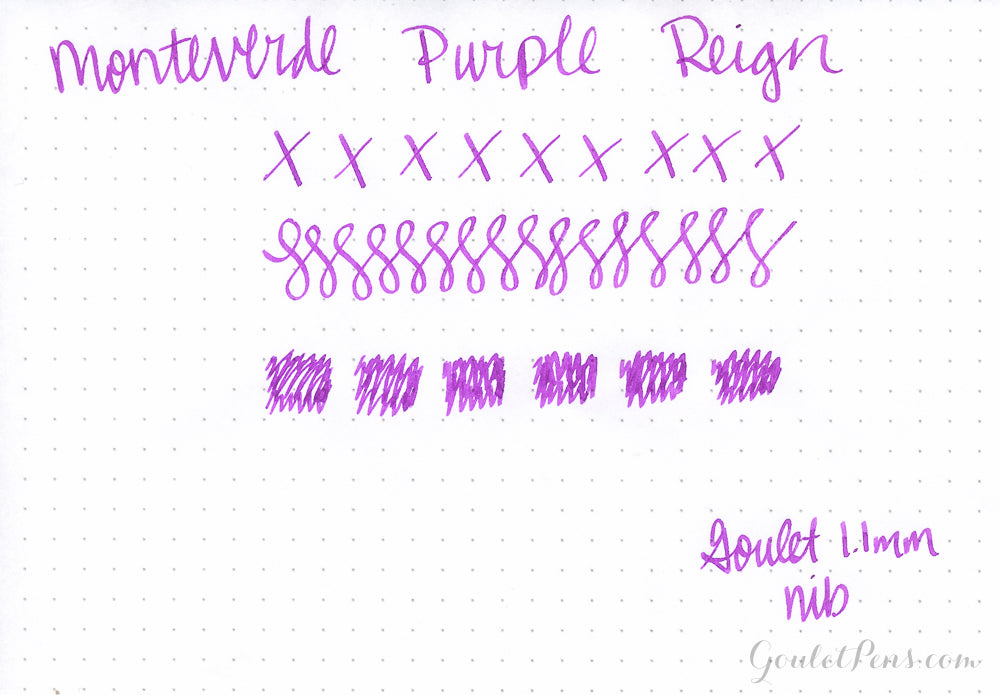 Monteverde Purple Reign
X X X X X X X X X
Goulet 1.1mm
nib
GouletPens.com